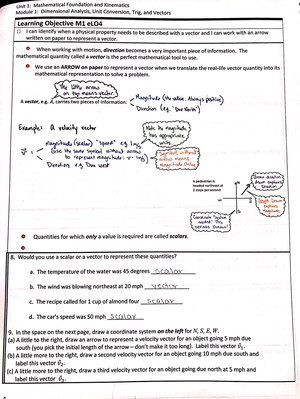 Unit 1: Mathematical Foundation and Kinematics
Module 1: Dimensional Analysis, Unit Conversion, Trig, and Vectors
Learning Objective M1 eLO4
I can identify when a physical property needs to be described with a vector and I can work with an arrow
written on paper to represent a vector.
When working with motion, direction becomes a very important piece of information. The
mathematical quantity called a vector is the perfect mathematical tool to use.
We use an ARROW on paper to represent a vector when we translate the real-life vector quantity into its
mathematical representation to solve a problem.
The little arrow
on top means vector.
A vector, e.g. A, carries two pieces of information:
Magnitude (the value. Always positive)
Direction (e.g. "Due North")
Example: A velocity vector
Note the magnitude
has appropriate
units.
magnitude (scalar) "speed" e.g. 1 m/s
(use the same symbol without arrow
to represent magnitude: v = 1 m/s)
Direction e.g. Due west
Symbol without
arrow means
Magnitude Only
A pedestrian is
headed northeast at
2 steps per second
Shows direction
Direction
Length
Magnitude
Coordinate "system
Quantities for which only a value is required are called scalars.
8. Would you use a scalar or a vector to represent these quantities?
a. The temperature of the water was 45 degrees scalar
b. The wind was blowing northeast at 20 mph vector
c. The recipe called for 1 cup of almond four scalar
d. The car's speed was 50 mph scalar
9. In the space on the next page, draw a coordinate system on the left for N, S, E, W.
(a) A little to the right, draw an arrow to represent a velocity vector for an object going 5 mph due
south (you pick the initial length of the arrow – don't make it too long). Label this vector v⃗₁.
(b) A little more to the right, draw a second velocity vector for an object going 10 mph due south and
label this vector v⃗₂.
(c) A little more to the right, draw a third velocity vector for an object going due north at 5 mph and
label this vector v⃗₃.